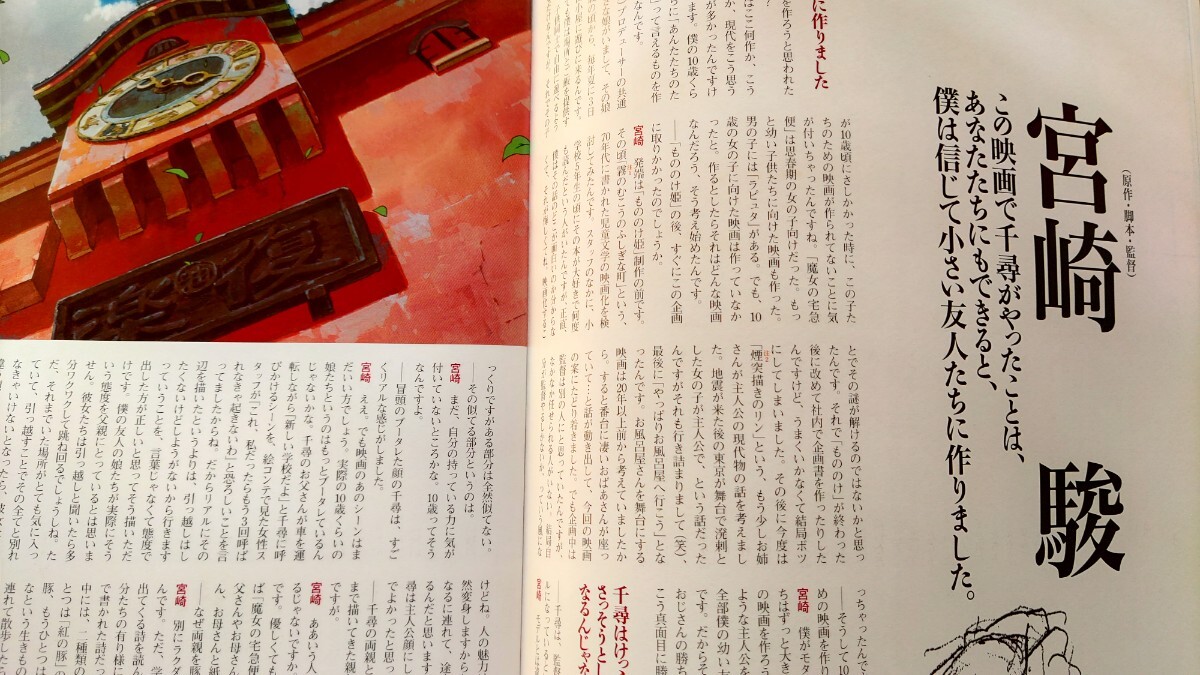 (原作・脚本・監督)
宮崎 駿
この映画で千尋がやったことは、
あなたたちにもできると、
僕は信じて小さい友人たちに作りました。
に作りました
を作ろうと思われた
はここ何作か、こう
か、現代をこう思う
が多かったんですけ
ます。僕の10歳くら
らに「あんたたちのた
」って言えるものを作
なんです。
が10歳頃にさしかかった時に、この子た
ちのための映画が作られてないことに気
が付いちゃったんですね。「魔女の宅急
便」は思春期の女の子向けだった。もっ
と幼い子供たちに向けた映画も作った。
男の子には「ラピュタ」がある。でも、10
歳の女の子に向けた映画は作っていなか
ったと。作るとしたらそれはどんな映画
なんだろう、そう考え始めたんです。
――「もののけ姫」の後、すぐにこの企画
に取りかかったのでしょうか。
宮崎 発端は「もののけ姫」制作の前です。
その頃「霧のむこうのふしぎな町」という、
70年代に書かれた児童文学の映画化を検
討してみたんです。スタッフのなかに、小
学校5年生の頃にその本が大好きで何度
も読んだという人がいたんですが、正直、
僕はその話のどこが面白いのか分からな
とでその謎が解けるのではないかと思っ
たんです。それで「もののけ」が終わった
後に改めて社内で企画書を作ったりした
んですけど、うまくいかなくて結局ボツ
にしてしまいました。その後に今度は
「煙突描きのリン」という、もう少しお姉
さんが主人公の現代物の話を考えまし
た。地震が来た後の東京が舞台で溌剌と
した女の子が主人公で、という話だった
んですがそれも行き詰まりまして(笑)、
最後に「やっぱりお風呂屋へ行こう」とな
ったんです。お風呂屋さんを舞台にする
映画は20年以上前から考えていましたか
ら。すると番台に凄いおばあさんが座っ
ていて…と話が動き出して、今回の映画
の案にたどり着きました。でも企画中は
っちゃったんで
――そうして10
めの映画を作り
宮崎 僕がモタ
ちはずっと大き
の映画を作ろう
ような主人公を
全部僕の幼い友
です。だからそ
おじさんの勝ち
こう真面目に勝
千尋はけっ
さっそうとし
なるんじゃな
っくりですがある部分は全然似てない。
――その似てる部分というのは。
宮崎 まだ、自分の持っている力に気が
付いていないところかな。10歳ってそう
なんですよ。
――冒頭のブータレた顔の千尋は、すご
くリアルな感じがしました。
宮崎 ええ。でも映画のあのシーンはま
だいい方でしょう。実際の10歳くらいの
娘たちというのはもっとブータレているん
じゃないかな。千尋のお父さんが車を運
転しながら「新しい学校だよ」と千尋に呼
びかけるシーンを、絵コンテで見た女性ス
タッフが「これ、私だったらもう3回呼ば
れなきゃ起きないわ」と恐ろしいことを言
ってましたからね。だからリアルにその
辺を描いたというよりは、引っ越しはし
たくないけどしようがないから行きます
っていうことを、言葉じゃなくて態度で
出した方が正しいと思ってそう描いただ
けです。僕の友人の娘たちが実際にそう
いう態度を父親にとっているとは思いま
せん。彼女たちは引っ越しと聞いたら多
分ワクワクして跳ね回るでしょうね。た
だ、それまでいた場所がとても気に入っ
ていて、引っ越すことでその全てと別れ
なきゃいけないとなったら、彼女た
けどね。人の魅力
然変身しますから
なるに連れて、途
るんだと思います
尋は主人公顔にし
でよかったと思っ
――千尋の両親と
まで描いてきた親
ですが。
宮崎 ああいう人
るじゃないですか
です。優しくても
ば「魔女の宅急便
父さんやお母さん
ん、お母さんと紙
――なぜ両親を豚
宮崎 別にラクダ
んです。ただ、学
出てくる詩を読ん
分たちの有り様に
で書かれた詩だっ
中には、二種類の
とつは「紅の豚」の
豚、もうひとつは
なという生きもの
連れて散歩したら